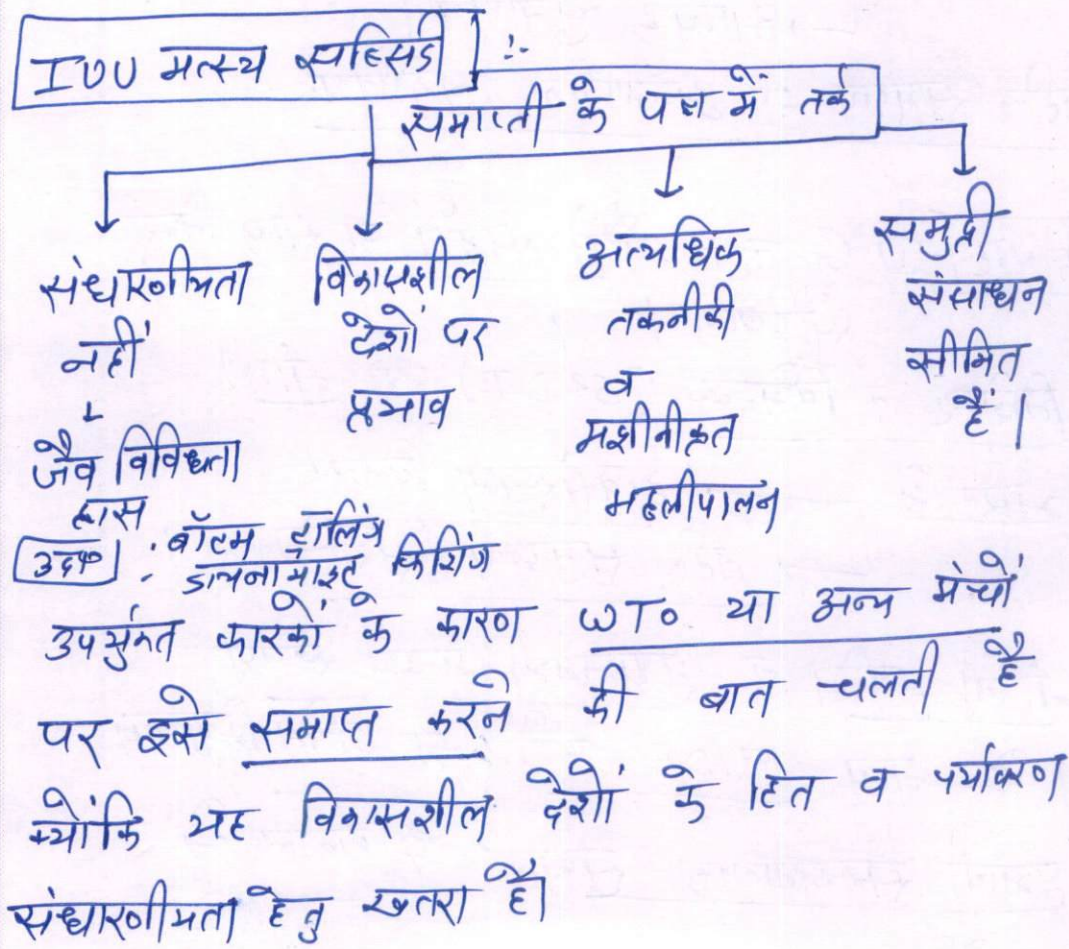 IUU मत्स्य सब्सिडी :-
समाप्ती के पक्ष में तर्क
संधारणीयता
नहीं
↓
जैव विविधता
ह्रास
विकासशील
देशों पर
प्रभाव
अत्यधिक
तकनीकी
व
मशीनीकृत
मछलीपालन
समुद्री
संसाधन
सीमित
हैं।
उदा० : बॉटम ट्रालिंग
डायनामाइट फिशिंग
उपर्युक्त कारकों के कारण WTO या अन्य मंचों
पर इसे समाप्त करने की बात चलती है
क्योंकि यह विकासशील देशों के हित व पर्यावरण
संधारणीयता हेतु खतरा है।